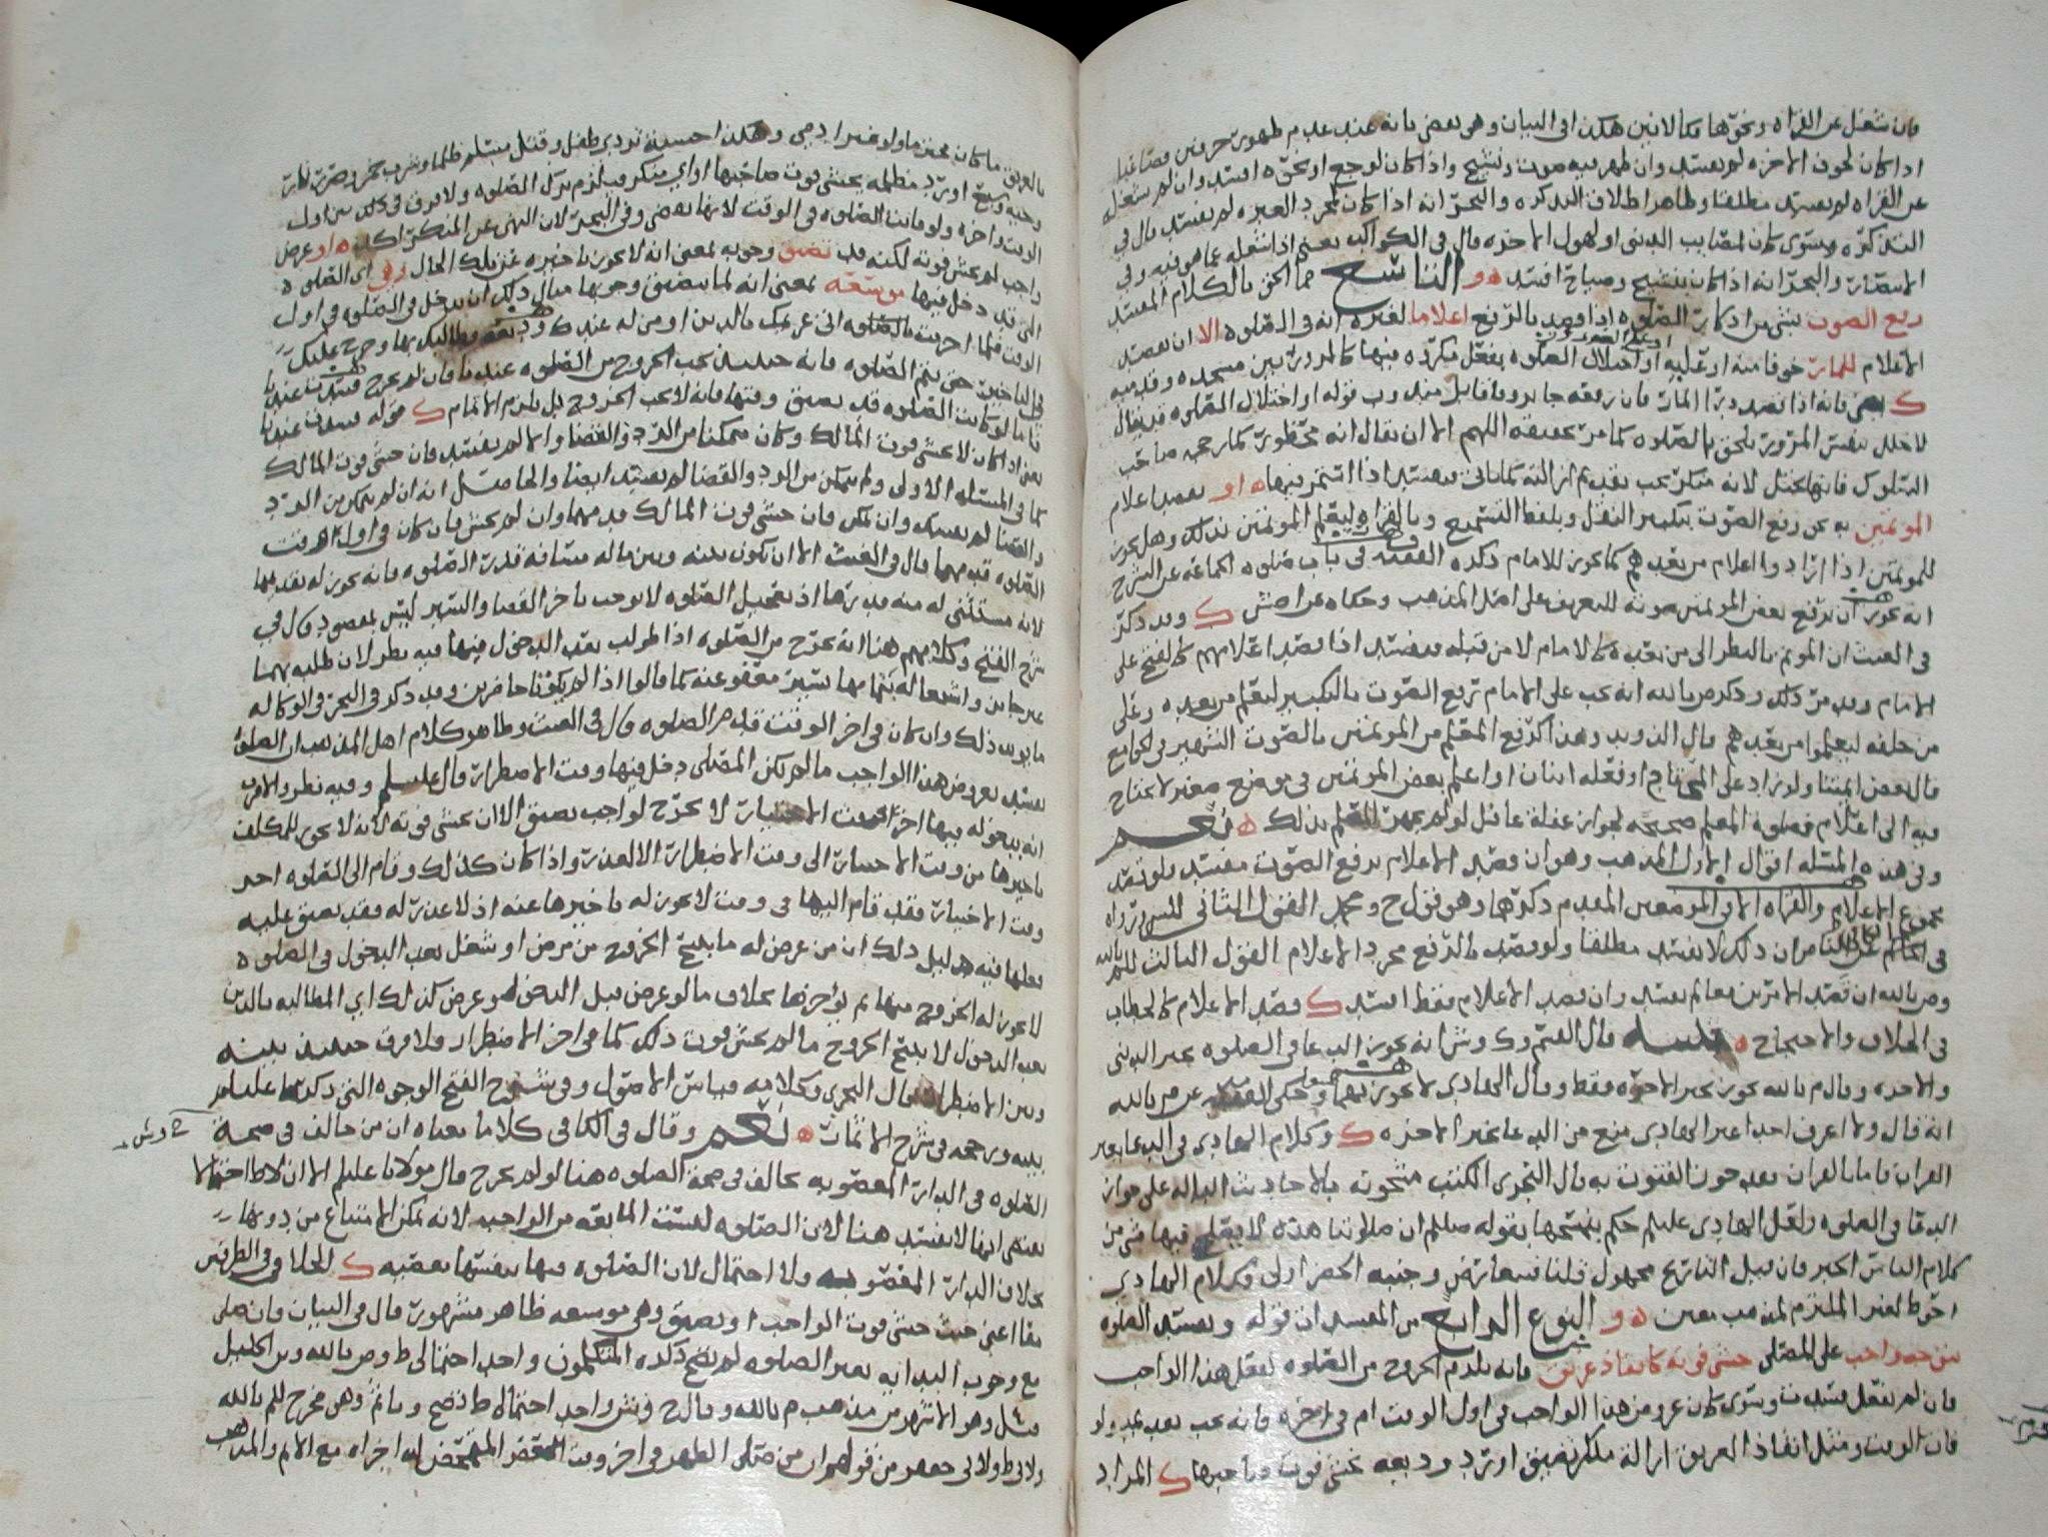 فان شغل عن القراه ونحوها فكالانين هكذا في البيان وهي بعض بانه عند عدم ظهور حرفين فصاعدا
اذا كان لخوف الاخره لم يفسد وان ظهر فيه صوت ونشيج واذا كان لوجع او نحوه افسد وان لم يشغل
عن القراه لم يفسد مطلقا وظاهر اطلاق التذكره والبحر انه اذا كان لمجرد العبره لم يفسد قال في
التذكره وسوى كان لمصايب الدنيا او لهول الاخره قال في الكواكب يعني اذا شغله عما هو فيه وفي
الانتصار والبحر انه اذا كان بنشيج وصياح افسد ه و التاسع مما الحق بالكلام المفسد
رفع الصوت بشي من اذكار الصلوه اذا قصد بالرفع اعلاما لغيره انه في الصلوه الا ان يقصد
الاعلام للمار خوفا منه او عليه او اختلال الصلوه بفعل مكروه فيها كالمرور بين مسجده وقدميه
ك يعني فانه اذا قصد درا المار فان رفعه جايز وفاقا بل مندوب قوله او اختلال الصلوه قد يقال
لا خلل بنفس المرور يلحق بالصلوه كما مر تحقيقه اللهم الا ان يقال انه محظور كما رجحه صاحب
السلوك فانها تختل لانه منكر يجب تقديم ازالته كما ياتي فتفسد اذا استمر فيها ه او يقصد اعلام
المؤتمين به نحو رفع الصوت بتكبير النقل وبلفظ التسميع وبالقراه ليعلم المؤتمين بذلك وهل يجوز
للمؤتمين اذا ارادوا اعلام من بعدهم كما يجوز للامام ذكره الفقيه في باب صلوه الجماعه عن الشرح
انه يجوز ان يرفع بعض المؤتمين صوته للتعريف على اصل المذهب وحكاه عن اصش ك وقد ذكر
في الغيث ان المؤتم بالنظر الى من بعده كالامام لا من قبله فيفسد اذا قصد اعلامهم كالفتح على
الامام وقد مر ذلك وذكر ص بالله انه يجب على الامام رفع الصوت بالتكبير ليعلم من بعده وعلى
من خلفه ليعلموا من بعدهم قال الدويد وهذا كرفع المعلم من المؤتمين بالصوت الشهير في الجامع
قال بعض ايمتنا ولو زاد على المحتاج او فعله اثنان او اعلم بعض المؤتمين في موضع صغير لا يحتاج
فيه الى اعلام فصلوه المعلم صحيحه لجواز غفله غافل لو لم يجهر المعلم بذلك ه نعم
وفي هذه المسئله اقوال الاول المذهب وهو ان قصد الاعلام برفع الصوت مفسد ولو قصد
مجموع الاعلام والقراه الا في الموضعين المقدم ذكرهما وهو قول ح ومحمد القول الثاني للس ورواه
في الكافي عن الناصر ان ذلك لا يفسد مطلقا ولو قصد بالرفع مجرد الاعلام القول الثالث للم بالله
وص بالله ان قصد الامرين معا لم يفسد وان قصد الاعلام فقط افسد ك قصد الاعلام كالخطاب
في الخلاف والاحتجاج ه تنبيه قال القسم وك وش انه يجوز الدعا في الصلوه بخير الدنيا
والاخره وقال م بالله يجوز بخير الاخره فقط وقال الهادي لا يجوز بهما وحكى الفقيه عن ص بالله
انه قال ولا اعرف احدا غير الهادي منع من الدعا بخير الاخره ك وكلام الهادي في الدعا بغير
القران فاما بالقران فقد جوز القنوت به قال النجري الكتب مشحونه بالاحاديث الداله على جواز
الدعا في الصلوه ولعل الهادي عليلم حكم بنسخها بقوله صلعلم ان صلاتنا هذه لا يصلح فيها شي من
كلام الناس الخبر فان قيل التاريخ مجهول قلنا فيتعارض وجنبه الحظر اولى وكلام الهادي
احوط لغير الملتزم لمذهب معين ه و النوع الرابع من المفسدات قوله وتفسد الصلوه
بتوجه واجب على المصلي خشي فوته كانقاذ غريق فانه يلزم الخروج من الصلوه لفعل هذا الواجب
فان لم يفعل فسدت وسوى كان عروض هذا الواجب في اول الوقت ام في اخره فانه يجب تقديمه ولو
فات الوقت ومثل انقاذ الغريق ازالة منكر تضيق او رد وديعه خشي فوت صاحبها ك المراد
بالغريق ما كان محترما ولو غير ادمي وهكذا خشية تردي طفل وقتل مسلم ظلما وشرب خمر وضرب انسان
وحيه وسبع او رد مظلمه يخشى فوت صاحبها او اي منكر فيلزم ترك الصلوه ولا فرق في ذلك بين اول
الوقت واخره ولو فاتت الصلوه في الوقت لانها تقضى وفي البحر لان النهي عن المنكر اكد ه او عرض
واجب لم يخش فوته لكنه قد تضيق وجوبه بمعنى انه لا يجوز تاخيره عن تلك الحال وهي اي الصلوه
التي قد دخل فيها موسعه بمعنى انه لما يتضيق وجوبها مثال ذلك ان يدخل في الصلوه في اول
الوقت فلما احرمت بالصلوه اتى غريمك بالدين او من له عندك وديعه وطالبك بها وحرج عليك
في التاخير حتى يتم الصلوه فانه حينيذ يجب الخروج من الصلوه عندنا فان لم يخرج فسدت عندنا
فاما لو كانت الصلوه قد تضيق وقتها فانه لا يجب الخروج بل يلزم الاتمام ك قوله فسدت عندنا
يعني اذا كان لا يخشى فوت المالك وكان متمكنا من الرد والقضا والا لم تفسد فان خشي فوت المالك
كما في المسئله الاولى ولم يتمكن من الرد والقضا لم تفسد ايضا والحاصل انه ان لم يتمكن من الرد
والقضا لم تفسد وان تمكن فان خشي فوت المالك قدمهما وان لم يخش فان كان في اول الوقت
الصلوه قدمهما قال في الغيث الا ان يكون بينه وبين ماله مسافه قدر الصلوه فانه يجوز له تقديمها
لانه مستثنى له منه قدرها اذ تعجيل الصلوه لا يوجب تاخر القضا والسير ليس بمقصود قال في
شرح الفتح وكلامهم هنا انه يخرج من الصلوه اذا طولب بعد الدخول فيها فيه نظر لان طلبه بهما
غير جايز واشتغاله بتمامها يسير معفو عنه كما قالوا اذا لم يكونا حاضرين وقد ذكر في البحر في الوكاله
ما يويد ذلك وان كان في اخر الوقت قدم الصلوه قال في الغيث وظاهر كلام اهل المذهب ان الصلوه
تفسد بعروض هذا الواجب ما لم يكن المصلي دخل فيها وقت الاضطرار قال عليلم وفيه نظر والاقرب
انه بدخوله فيها اخر وقت الاختيار لا يخرج لواجب تضيق الا ان يخشى فوته لانه لا يجوز للمكلف
تاخيرها من وقت الاختيار الى وقت الاضطرار الا لعذر واذا كان كذلك وقام الى الصلوه اخر
وقت الاختيار فقد قام اليها في وقت لا يجوز له تاخيرها عنه اذ لا عذر له فقد تضيق عليه
فعلها فيه دليل ذلك ان من عرض له ما يبيح الخروج من مرض او شغل بعد الدخول في الصلوه
لا يجوز له الخروج منها ثم يؤخرها بخلاف ما لو عرض قبل الدخول فهو عرض كذلك اي المطالبه بالدين
بعد الدخول لا يبيح الخروج ما لم يخش فوت ذلك كما في اخر الاضطرار ولا فرق حينيذ بينه
وبين الاضطرار قال النجري وكلامه قياس الاصول وفي شرح الفتح الوجوه التي ذكرتها عليلم
بينه ورجحه في شرح الاثمار ه نعم وقال في الكافي كلاما معناه ان من خالف في صحة
الصلوه في الدار المغصوبه يخالف في صحة الصلوه هنا لو لم يخرج قال مولانا عليلم الا ان لاط احتمالا
يقتضي انها لا تفسد هنا لان الصلوه ليست المانعه من الواجب لانه يمكن الامتناع من دونها
بخلاف الدار المغصوبه ولا احتمال لان الصلوه فيها بنفسها معصيه ك الخلاف في الطرفين
معا اعني حيث خشي فوت الواجب او تضيق وهي موسعه ظاهر مشهور قال في البيان وان صلى
مع وجوب البدايه بغير الصلوه لم تصح ذكره المتكلمون واحد احتمالي ط وص بالله وبن الخليل
مثل وهو الاشهر من مذهب م بالله وقال ح وش واحد احتمالا ط تصح وياثم وهي مخرج للم بالله
ولابي ط ولابي جعفر من قولهم ان من صلى الظهر في اخر وقت العصر المتمحض له اجزاه مع الاثم والمذهب